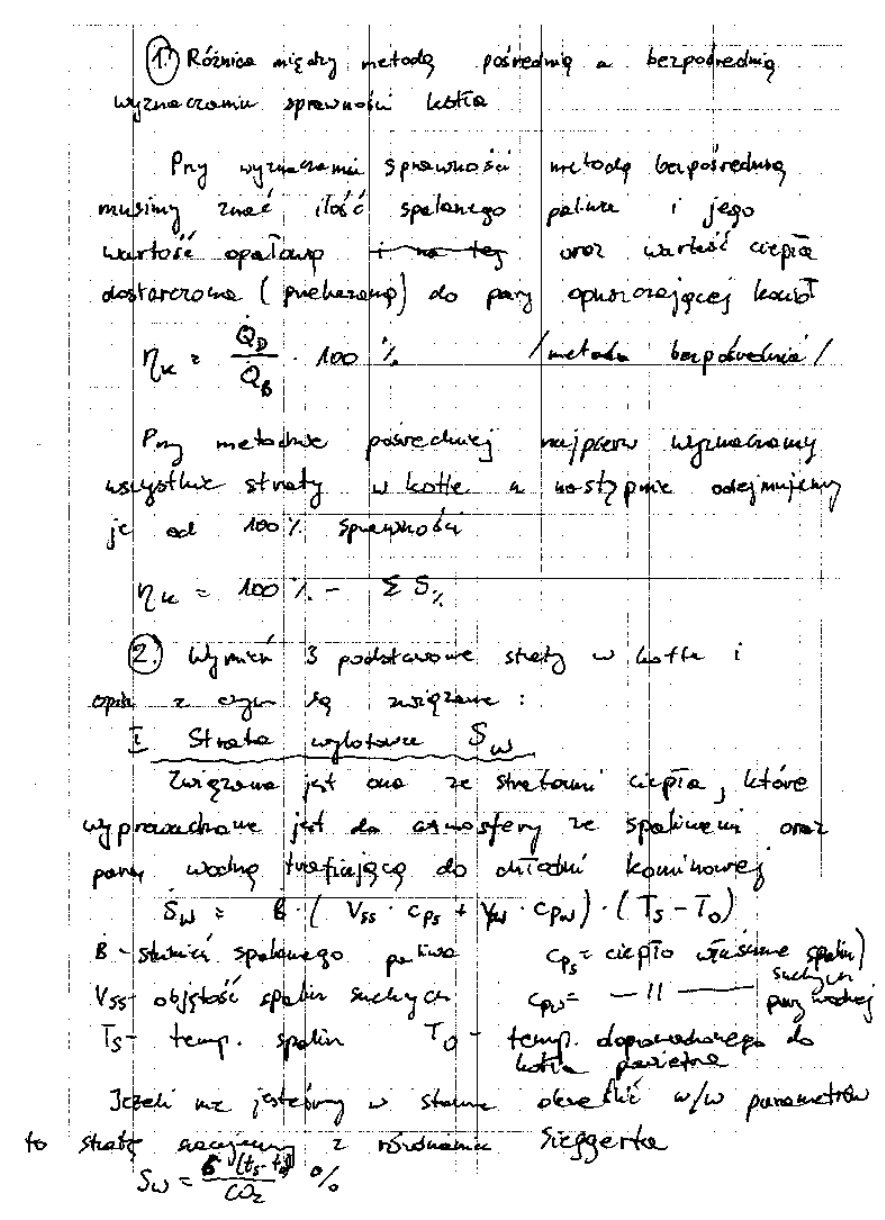 1. Różnica między metodą pośrednią a bezpośrednią
wyznaczaniu sprawności kotła
Przy wyznaczaniu sprawności metodą bezpośrednią
musimy znać ilość spalanego paliwa i jego
wartość opałową i na tej oraz wartość ciepła
dostarczoną (przekazaną) do pary opuszczającej kocioł
ηk = Q̇D / Q̇B · 100 % /metoda bezpośrednia/
Przy metodzie pośredniej najpierw wyznaczamy
wszystkie straty w kotle a następnie odejmujemy
je od 100 % sprawności
ηk = 100 % - Σ S%
2. Wymień 3 podstawowe straty w kotle i
opisz z czym są związane :
I Strata wylotowa Sw
Związana jest ona ze stratami ciepła, które
wyprowadzane jest do atmosfery ze spalinami oraz
parą wodną trafiającą do chłodni kominowej
Sw = B · ( Vss · cps + Vw · cpw ) · ( Ts - To )
B - spalanego paliwa cps = ciepło właściwe spalin suchych
Vss - objętość spalin suchych cpw = — 11 — pary wodnej
Ts - temp. spalin To - temp. doprowadzanego do
kotła powietrza
Jeżeli nie jesteśmy w stanie określić w/w parametrów
to stratę szacujemy z równania Sieggerta
Sw = 6 (ts - to) / CO2 %